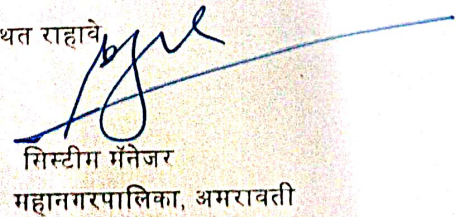 थत राहावे
सिस्टीम मॅनेजर
महानगरपालिका, अमरावती